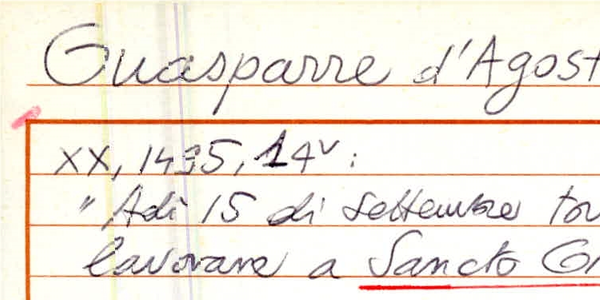 Guasparre d'Agost
XX, 1435, 14v:
"Adì 15 di settembre tor
lavorare a Sancto Gi